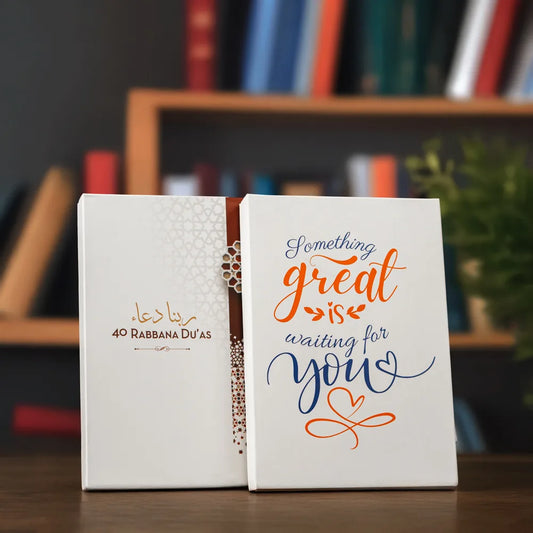 ربنا دعاء
40 RABBANA DU'AS
Something
great
is
waiting for
you